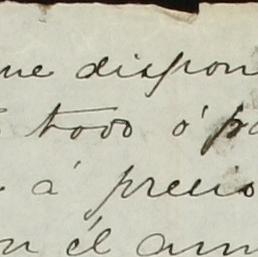 me dispon
todo ó pa
á precis
en él ann